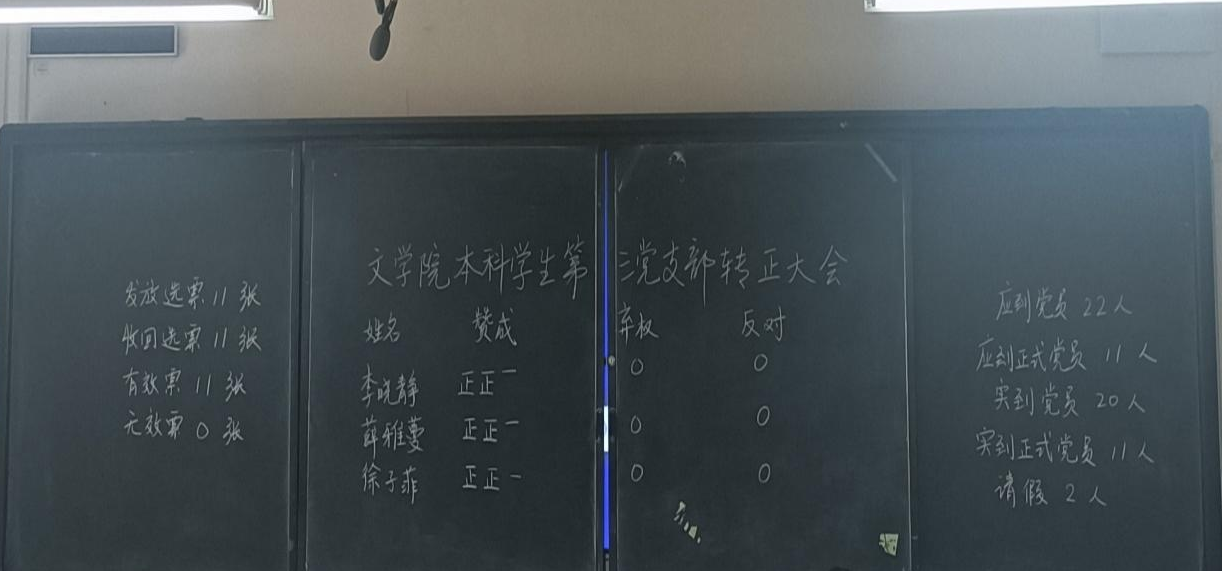 文学院本科学生第三党支部转正大会
发放选票11张
收回选票11张
有效票11张
无效票0张
姓名 赞成 弃权 反对
李晓静 正正一 0 0
薛雅蔓 正正一 0 0
徐子菲 正正一 0 0
应到党员22人
应到正式党员11人
实到党员20人
实到正式党员11人
请假2人